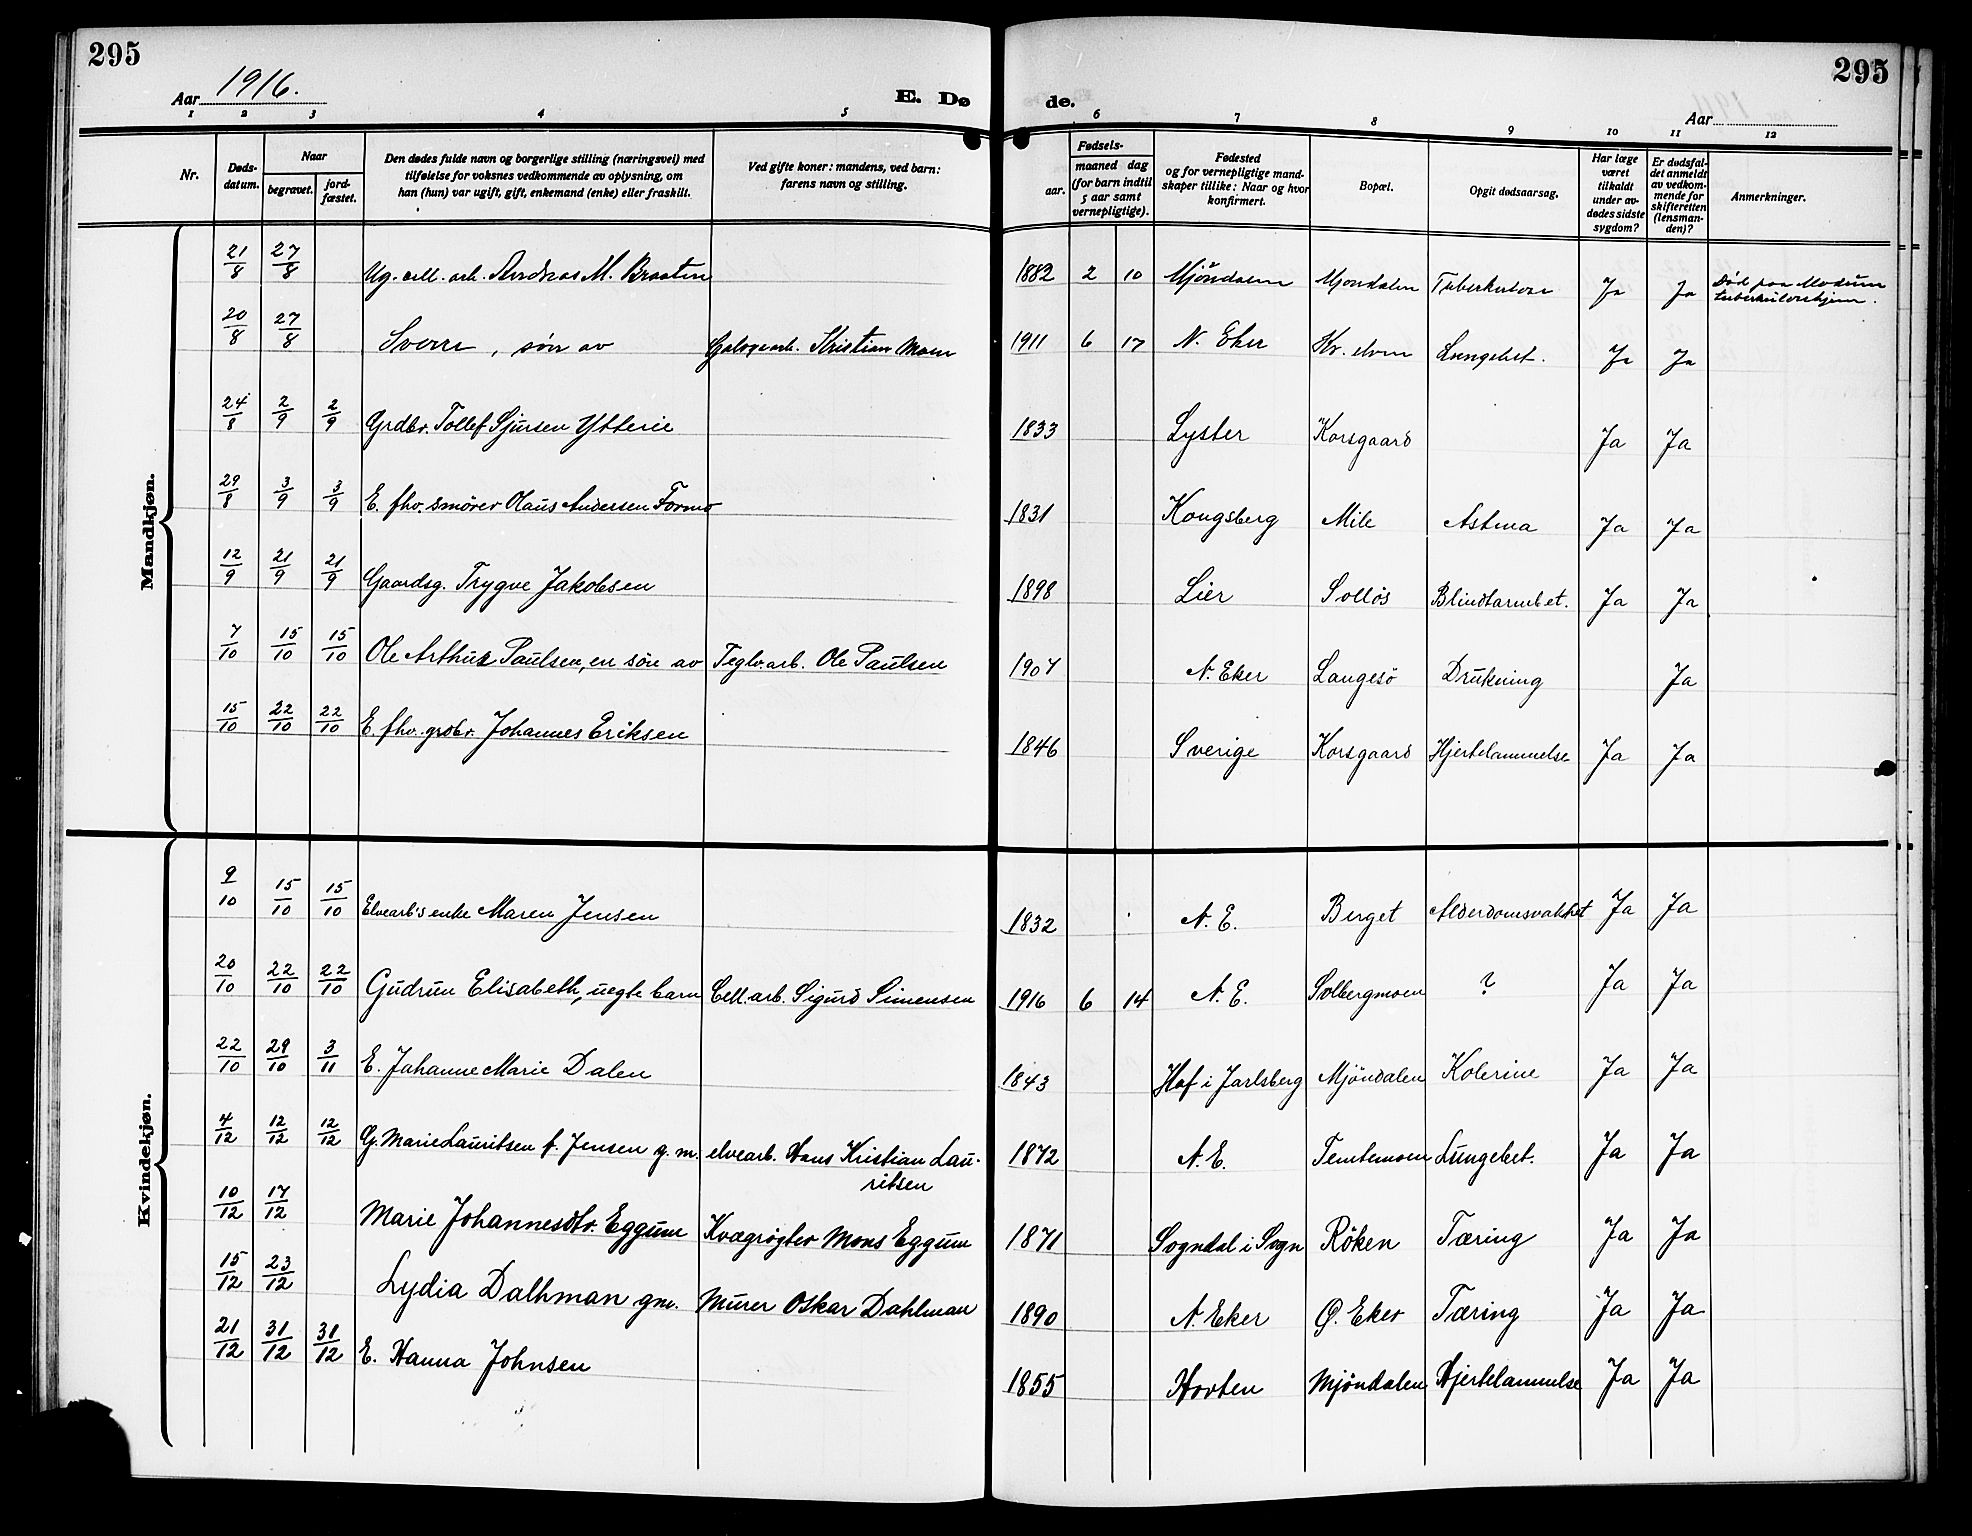 295
295
Aar 1916.
E. Dø
de.
Aar
1 2 3 4 5 6 7 8 9 10 11 12
Nr.
Døds-
datum.
Naar
begravet.
jord-
fæstet.
Den dødes fulde navn og borgerlige stilling (næringsvei) med
tilføielse for voksnes vedkommende av oplysning, om
han (hun) var ugift, gift, enkemand (enke) eller fraskilt.
Ved gifte koner: mandens, ved barn:
farens navn og stilling.
Fødsels-
aar.
maaned dag
(for barn indtil
5 aar samt
vernepligtige).
Fødested
og for vernepligtige mand-
skaper tillike: Naar og hvor
konfirmert.
Bopæl.
Opgit dødsaarsag.
Har læge
været
tilkaldt
under av-
dødes sidste
sygdom?
Er dødsfal-
det anmeldt
av vedkom-
mende for
skifteretten
(lensman-
den)?
Anmerkninger.
Mandkjøn.
21/8 27/8 Ug. cell. arb. Andreas M. Braaten 1882 2 10 Mjöndalen Mjondalen Tuberkulose Ja Ja Död paa Modum
tuberkuloschjem.
20/8 27/8 Sverre, sön av Kristian Moen 1911 6 17 N. Eker Kr. elven Lungebet. Ja Ja
24/8 2/9 2/9 Grdbr. Tollef Sjursen Ytterie 1833 Lyster Korsgaard Ja Ja
29/8 3/9 3/9 E. fhv. smörer Olaus Andersen Formo 1831 Kongsberg Mile Astma Ja Ja
12/9 21/9 21/9 Gaardsg. Trygve Jakobsen 1898 Lier Solløs Blindtarmbet. Ja Ja
7/10 15/10 15/10 Ole Arthur Paulsen, en sön av Teglv.arb. Ole Paulsen 1907 N. Eker Langesö Drukning Ja
15/10 22/10 22/10 E. fhv. grdbr. Johannes Eriksen 1846 Sverige Korsgaard Hjertelammelse Ja Ja
Kvindekjøn.
9/10 15/10 15/10 Elvearb's enke Maren Jensen 1832 N. E. Berget Alderdomsvakhet Ja Ja
20/10 22/10 22/10 Gudrun Elisabeth, uegte barn Cell.arb. Sigurd Simensen 1916 6 14 N. E. Solbergmoen ? Ja Ja
22/10 29/10 3/11 E. Johanne Marie Dalen 1843 Hof i Jarlsberg Mjöndalen Kolerine Ja Ja
4/12 12/12 12/12 G. Marie Lauritsen f. Jensen g.m. elvearb. Hans Kristian Lau-
ritsen 1872 N. E. Temtemoen Lungebet. Ja Ja
10/12 17/12 Marie Johannesdtr. Eggum Kvægrögter Mons Eggum 1871 Sogndal i Sogn Röken Tæring Ja Ja
15/12 23/12 Lydia Dalhman gm. Murer Oskar Dahlman 1890 N. Eker Ø. Eker Tæring Ja Ja
21/12 31/12 31/12 E. Hanna Johnsen 1855 Horten Mjöndalen Hjertelammelse Ja Ja